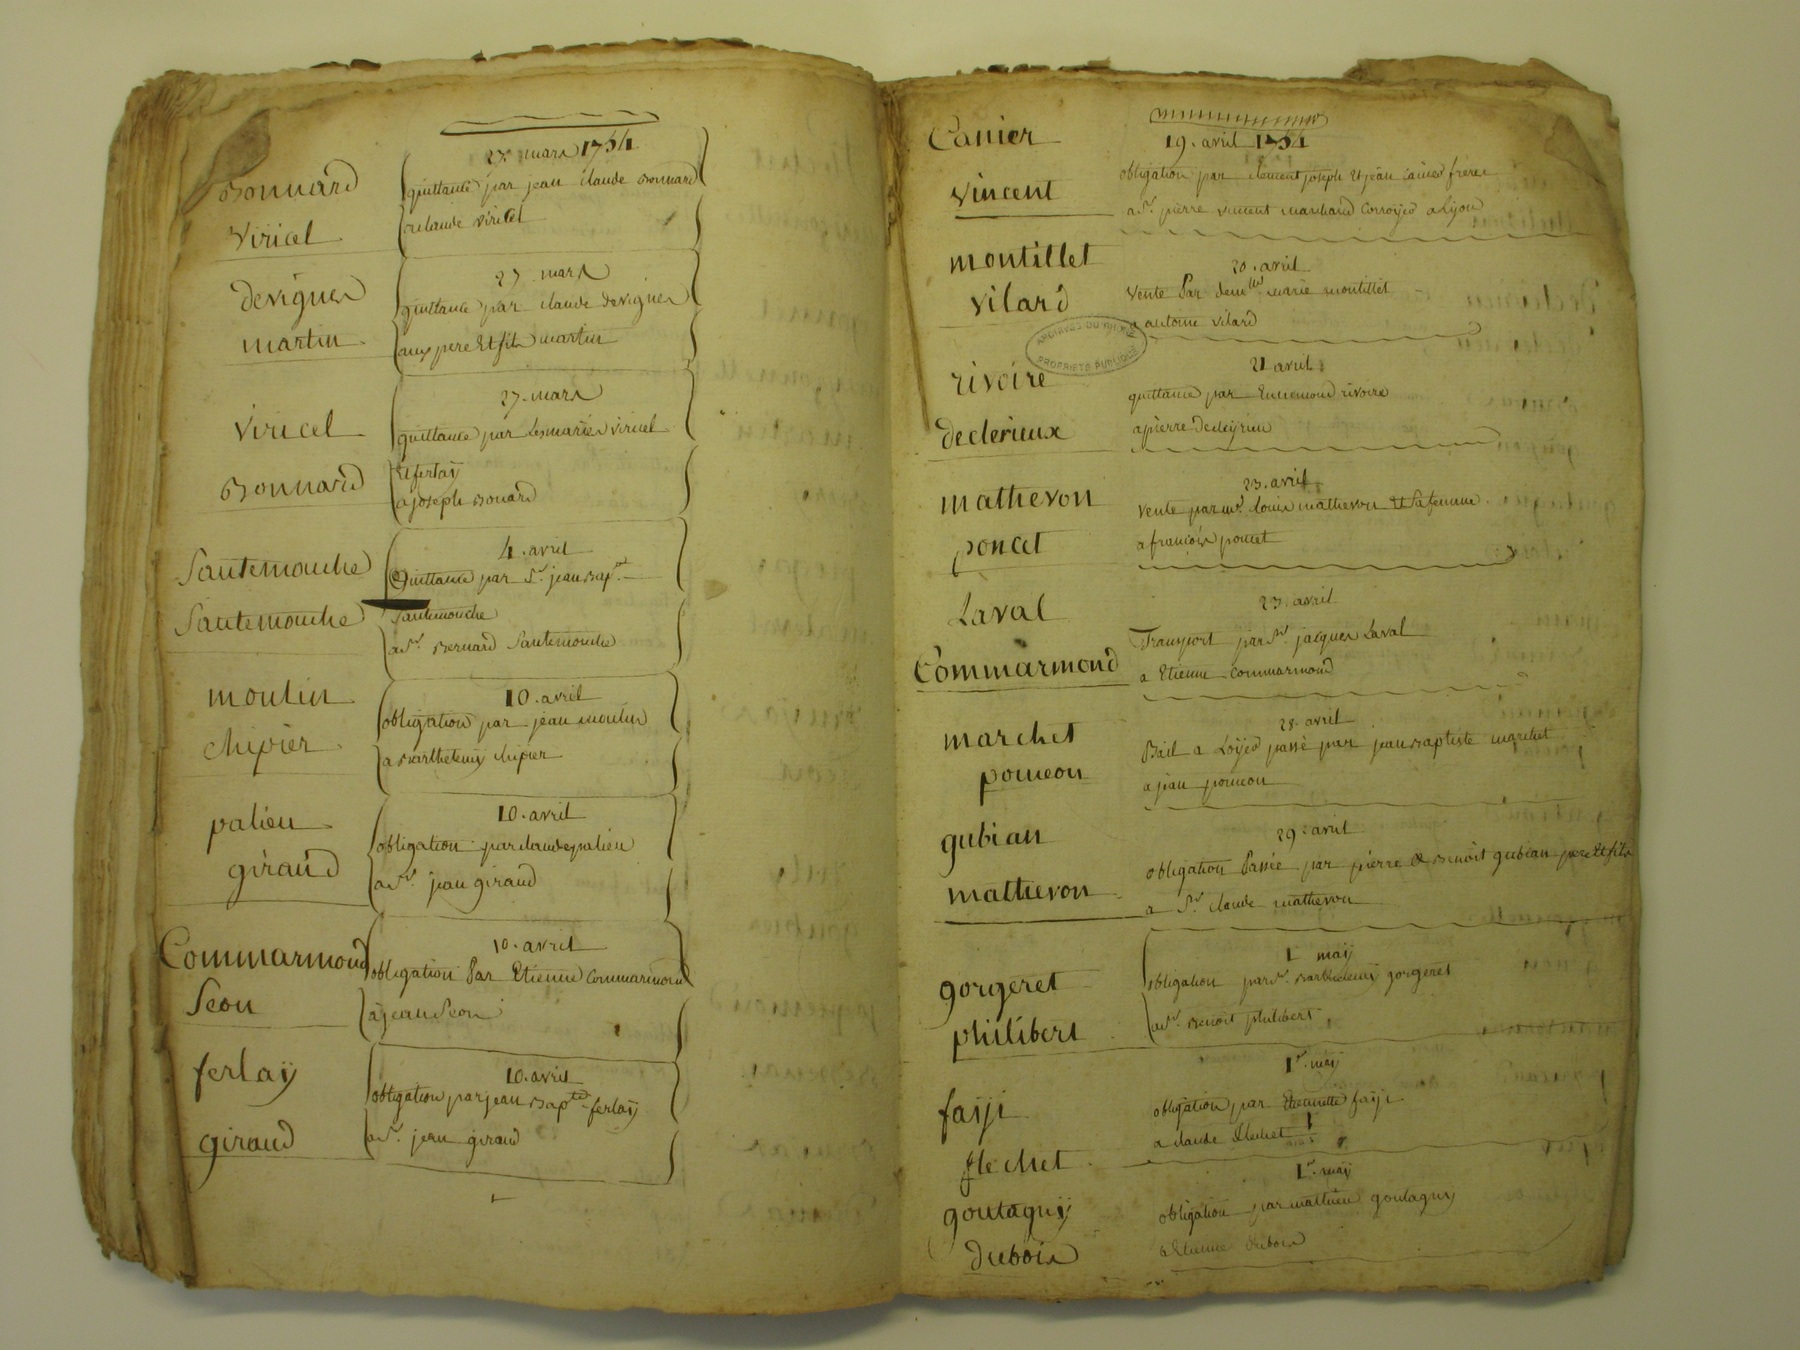 27. mars 1754
Bonnard
quittance par jean claude Bonnard
Viricel
a claude viricel
27. mars
devignes
quittance par claude devignes
martin
aux pere et fils martin
27. mars
Viricel
quittance par les mariés viricel
Et ferlaÿ
Bonnard
a joseph Bonard
4. avril
Sautemouche
Quittance par Sr. jean Bapte.
Sautemouche
Sautemouche
a Sr. Bernard Sautemouche
10. avril
moulin
obligation par jean moulin
chipier
a Barthelemÿ chipier
10. avril
palieu
obligation par claude palieu
giraud
a Sr. jean giraud
10. avril
Commarmond
obligation Par Etienne Commarmond
Seon
a jean Seon
10. avril
ferlaÿ
obligation par jean Bapte ferlaÿ
giraud
a Sr. jean giraud
19. avril 1754
Canier
obligation par clement joseph et jean canier freres
vincent
a Sr. pierre vincent marchand corroÿed a Lÿon
20. avril
montillet
vente Par demlle. marie montillet
vilard
a antoine vilard
ARCHIVES DU RHONE
PROPRIETE PUBLIQUE
21 avril
rivoire
quittance par Ennemond rivoire
declerieux
a pierre
23. avril
mathevon
vente par mr. louis mathevon et Sa femme
poncet
a francois poncet
23. avril
Laval
Transport par Sr. jacques Laval
Commarmond
a Etienne Commarmond
28. avril
marchet
Bail a Loÿed passé par jean Baptiste marchet
pomeon
a jean pomeon
29. avril
gubian
obligation Passée par pierre & Benoit gubian pere Et fils
mathevon
a Sr. claude mathevon
1 maÿ
gorgeret
obligation par Sr. Barthelemÿ gorgeret
philibert
a Sr. Benoit philibert
1r. maÿ
faÿji
obligation par Etiennette faÿji
flechet
a claude flechet
1r. maÿ
goutagnÿ
obligation par mathieu goutagnÿ
dubois
a Etienne dubois